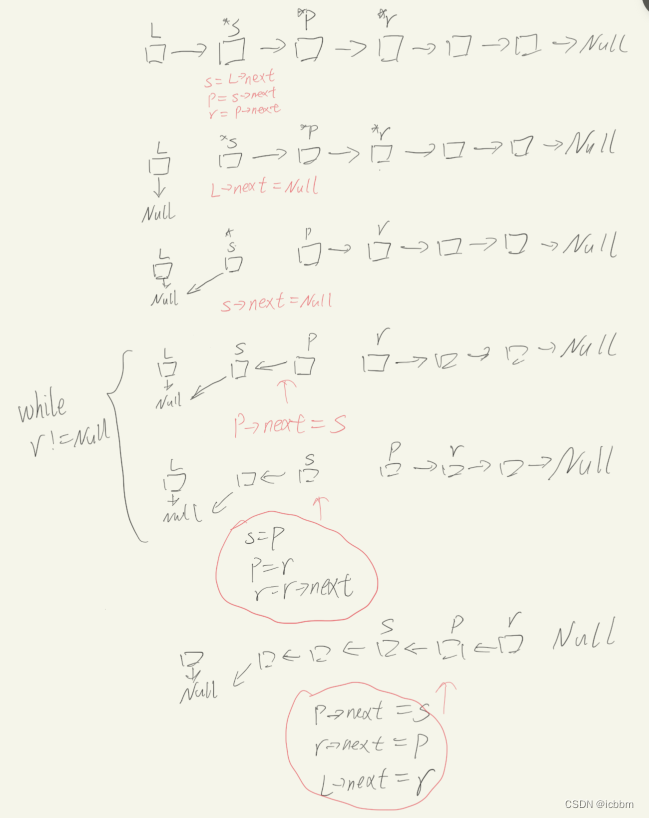 L *s *p *r
Null
s = L→next
p = s→next
r = p→next
L *s *p *r
Null
L→next = Null
Null
L * s p r
Null
Null
s→next = Null
L s p r
Null
Null
while
r != Null
p→next = s
L s p r
Null
null
s=p
p=r
r=r→next
s p r
Null
Null
p→next = s
r→next = p
L→next = r
CSDN @icbbm